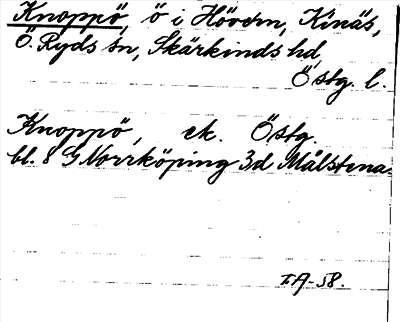 Knoppö, ö i Hövern, Kinäs,
Ö. Ryds sn, Skärkinds hd,
Östg. l.
Knoppö, ek. Östg.
bl. 8 G Norrköping 3d Målstena.
IA-58.